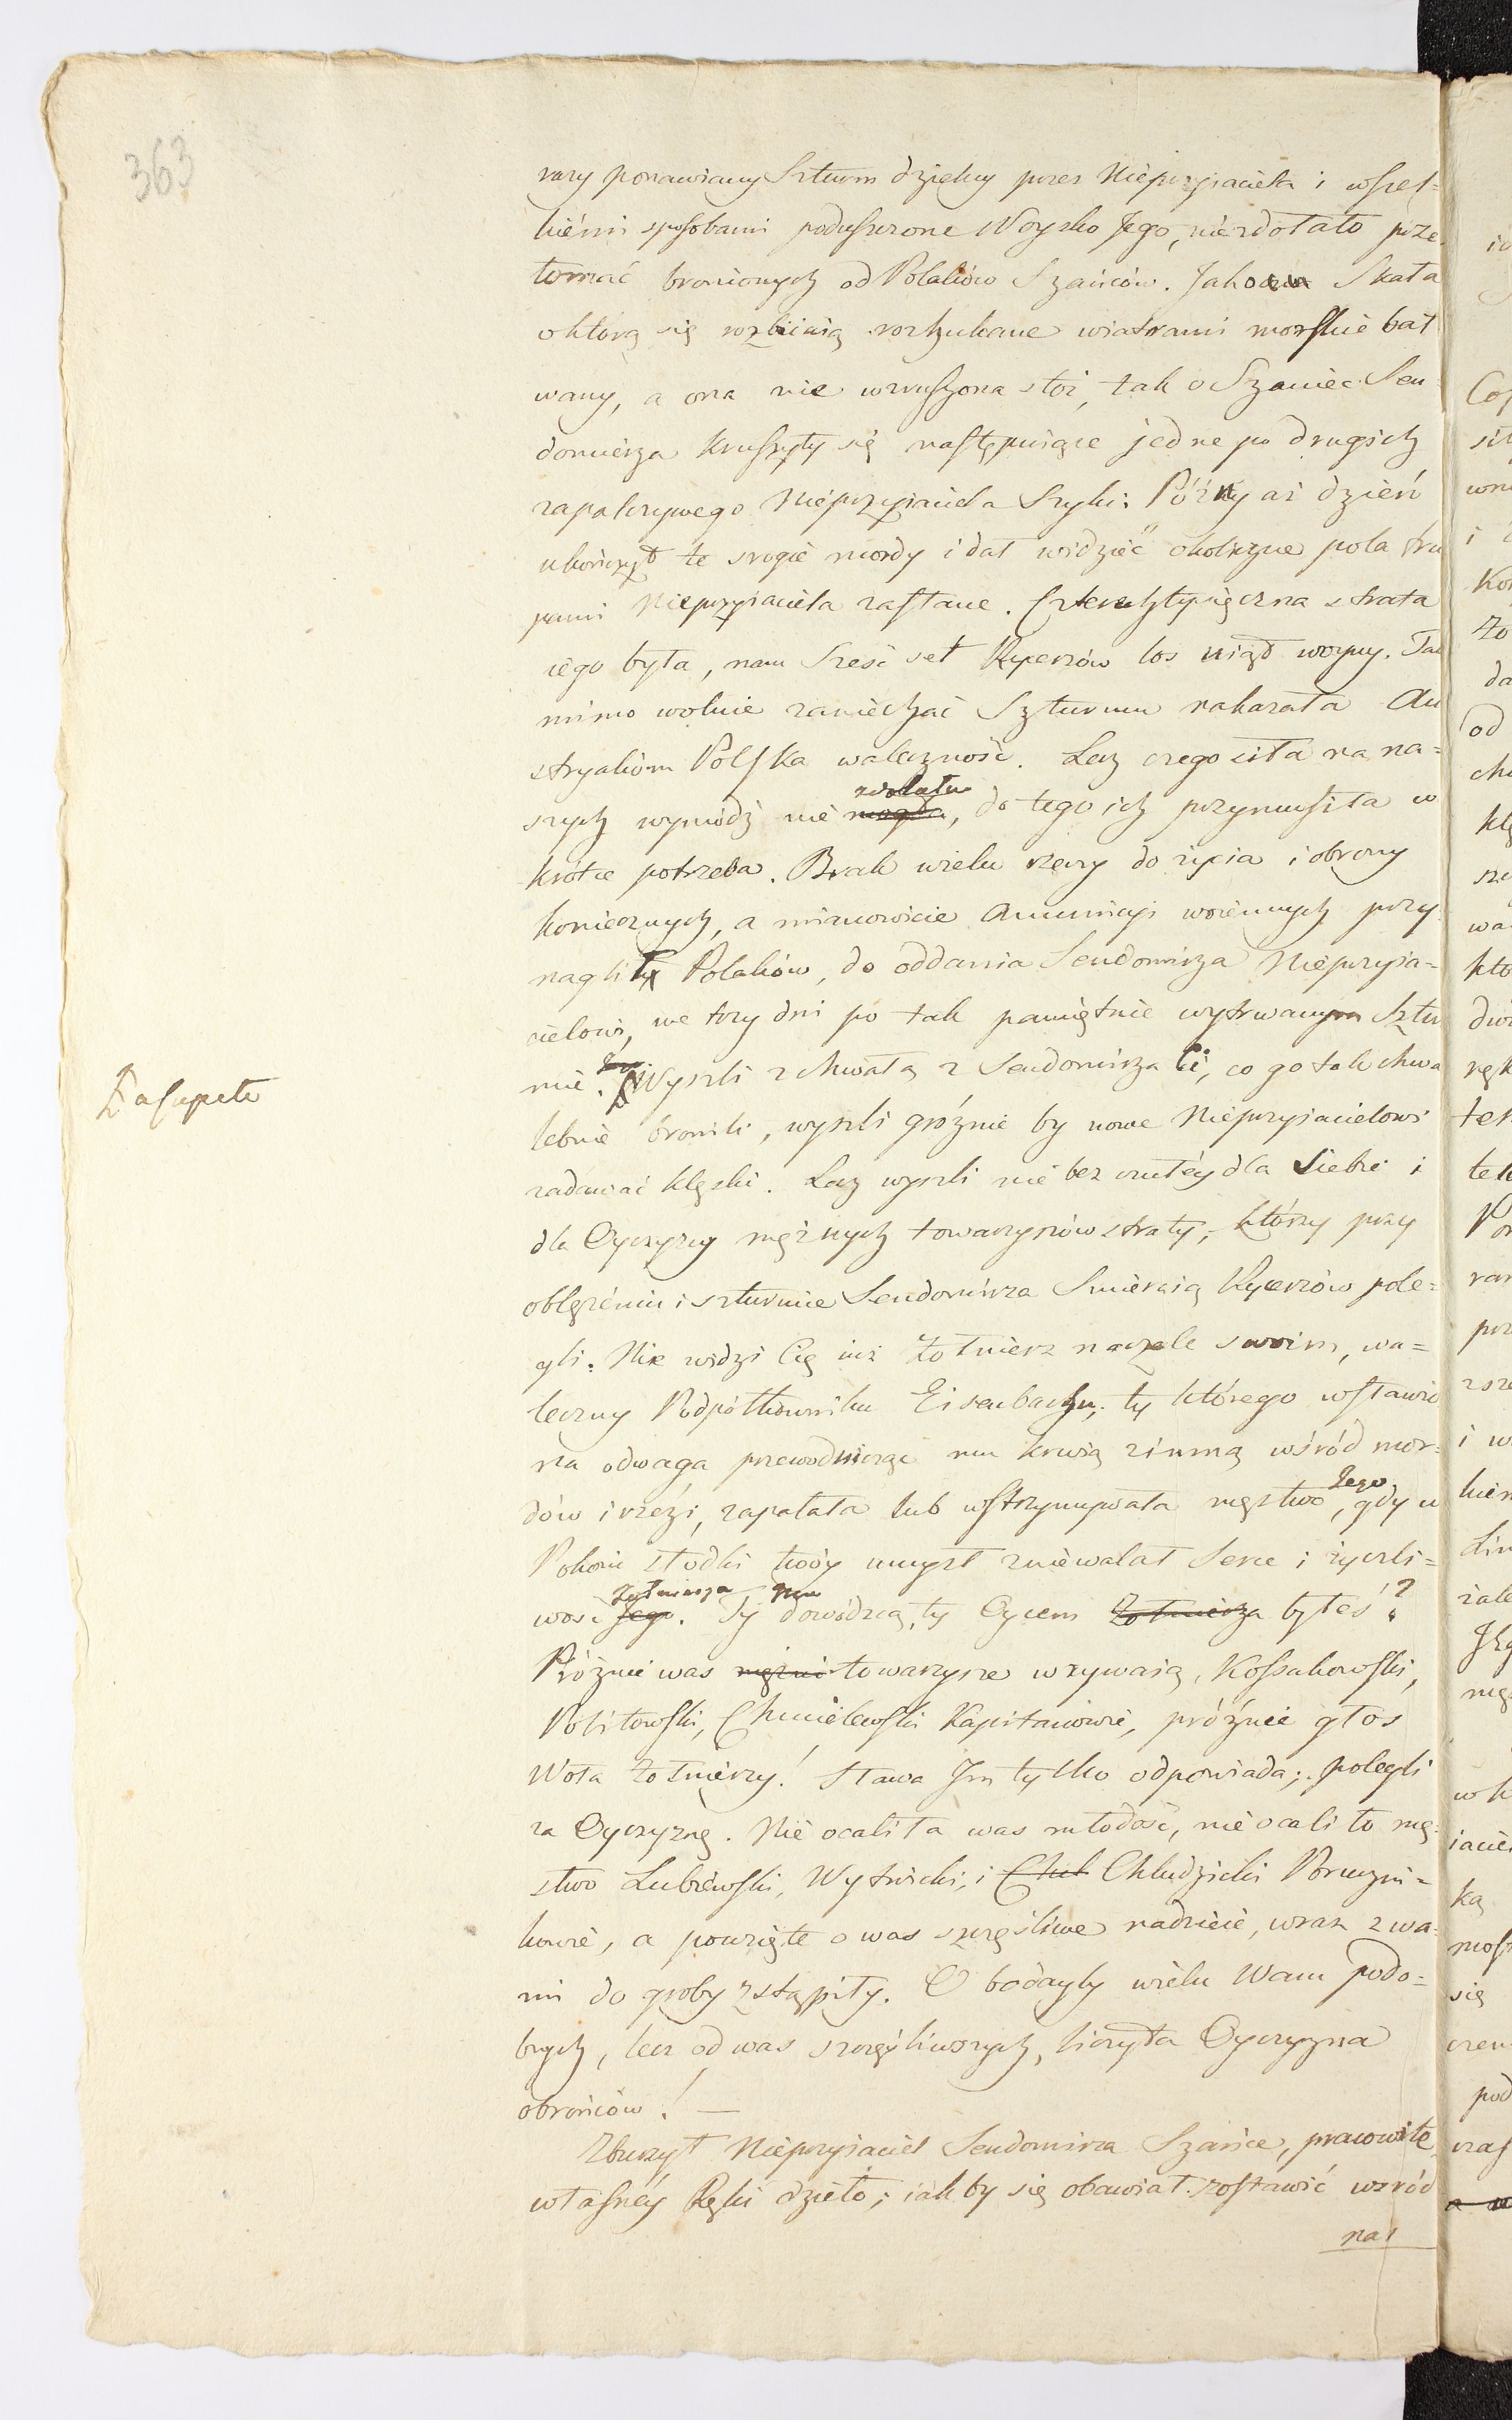 363
razy ponawiany Szturm dzielny przez Nieprzyiaciela i wszel=
kiémi sposobami poduszczone Woysko Jego, niezdołało prze
łomać bronionych od Polaków Szańców. Jako Skała
o którą się rozbiiaią rozhukane wiatrami morskie bał
wany, a ona nie wzruszona stoi, tak o Szaniec Sen
domierza kruszyły się następuiące jedne po drugich
zapalczywego Nieprzyiaciela Szyki. Póżny aż dzień
ukończył te srogie mordy i dał widzieć okoliczne pola tru
pami Nieprzyiaciela zasłane. Czterechtysięczna strata
iego była, nam Sześć set Rycerzów los wziął woyny. Tak
mimo wolnie zaniechać Szturmu nakazała Au
stryakóm Polska waleczność. Lecz czego siła na na=
szych wymódz nie mogła zdołała, do tego ich przymusiła w
krótce potrzeba. Brak wielu rzeczy do życia i obrony
koniecznych, a mianowicie Amunicyi woiennych przy
naglił Polaków, do oddania Sendomirza Nieprzyia=
cielowi, we trzy dni po tak pamiętnie wytrwanym Sztur
mie. Wyszli z chwałą z Sendomirza ci, co go tak chwa
Zasupełe
lebnie bronili, wyszli groźnie by nowe Nieprzyiacielowi
zadawać klęski. Lecz wyszli nie bez czułéy dla Siebie i
dla Oyczyzny mężnych towarzyszów straty, którzy przy
oblężeniu i szturmie Sendomirza Smiercią Rycerzów pole=
gli. Nie widzi Cię iuż Żołnierz naczele swoim, wa=
leczny Podpółkowniku Eisenbachu, ty którego wsławio
na odwaga przewodnicząc mu krwią zimną wśród mor=
dów i rzezi, zapalała lub wstrzymywała męztwo Jego, gdy w
Pokoiu słodki twóy umysł zniewalał Serce i życzli=
wość Jego Żołnierza. Ty mu dowódzcą, ty Oycem Żołnierza byłeś?
Próżnie was mężni towarzysze wzywaią, Kossakowski,
Politowski, Chmielewski Kapitanowie, próżnie głos
Woła Żołnierzy! Sława Jm tylko odpowiada; polegli
za Oyczyznę. Nie ocaliła was młodość, nie ocaliło mę=
stwo Lubiéwski, Wytwicki, i Chul Chludzicki Poruczni=
kowie, a powzięte o was szczęśliwe nadzieie, wraz z wa=
mi do groby zstąpiły. O bodayby wielu Wam podo=
bnych, lecz od was szczęśliwszych, liczyła Oyczyzna
obrońców! —
Zburzył Nieprzyiaciel Sendomirza Szańce, pracowite
własnéy Ręki dzieło; iak by się obawiał zostawić wśród
nas